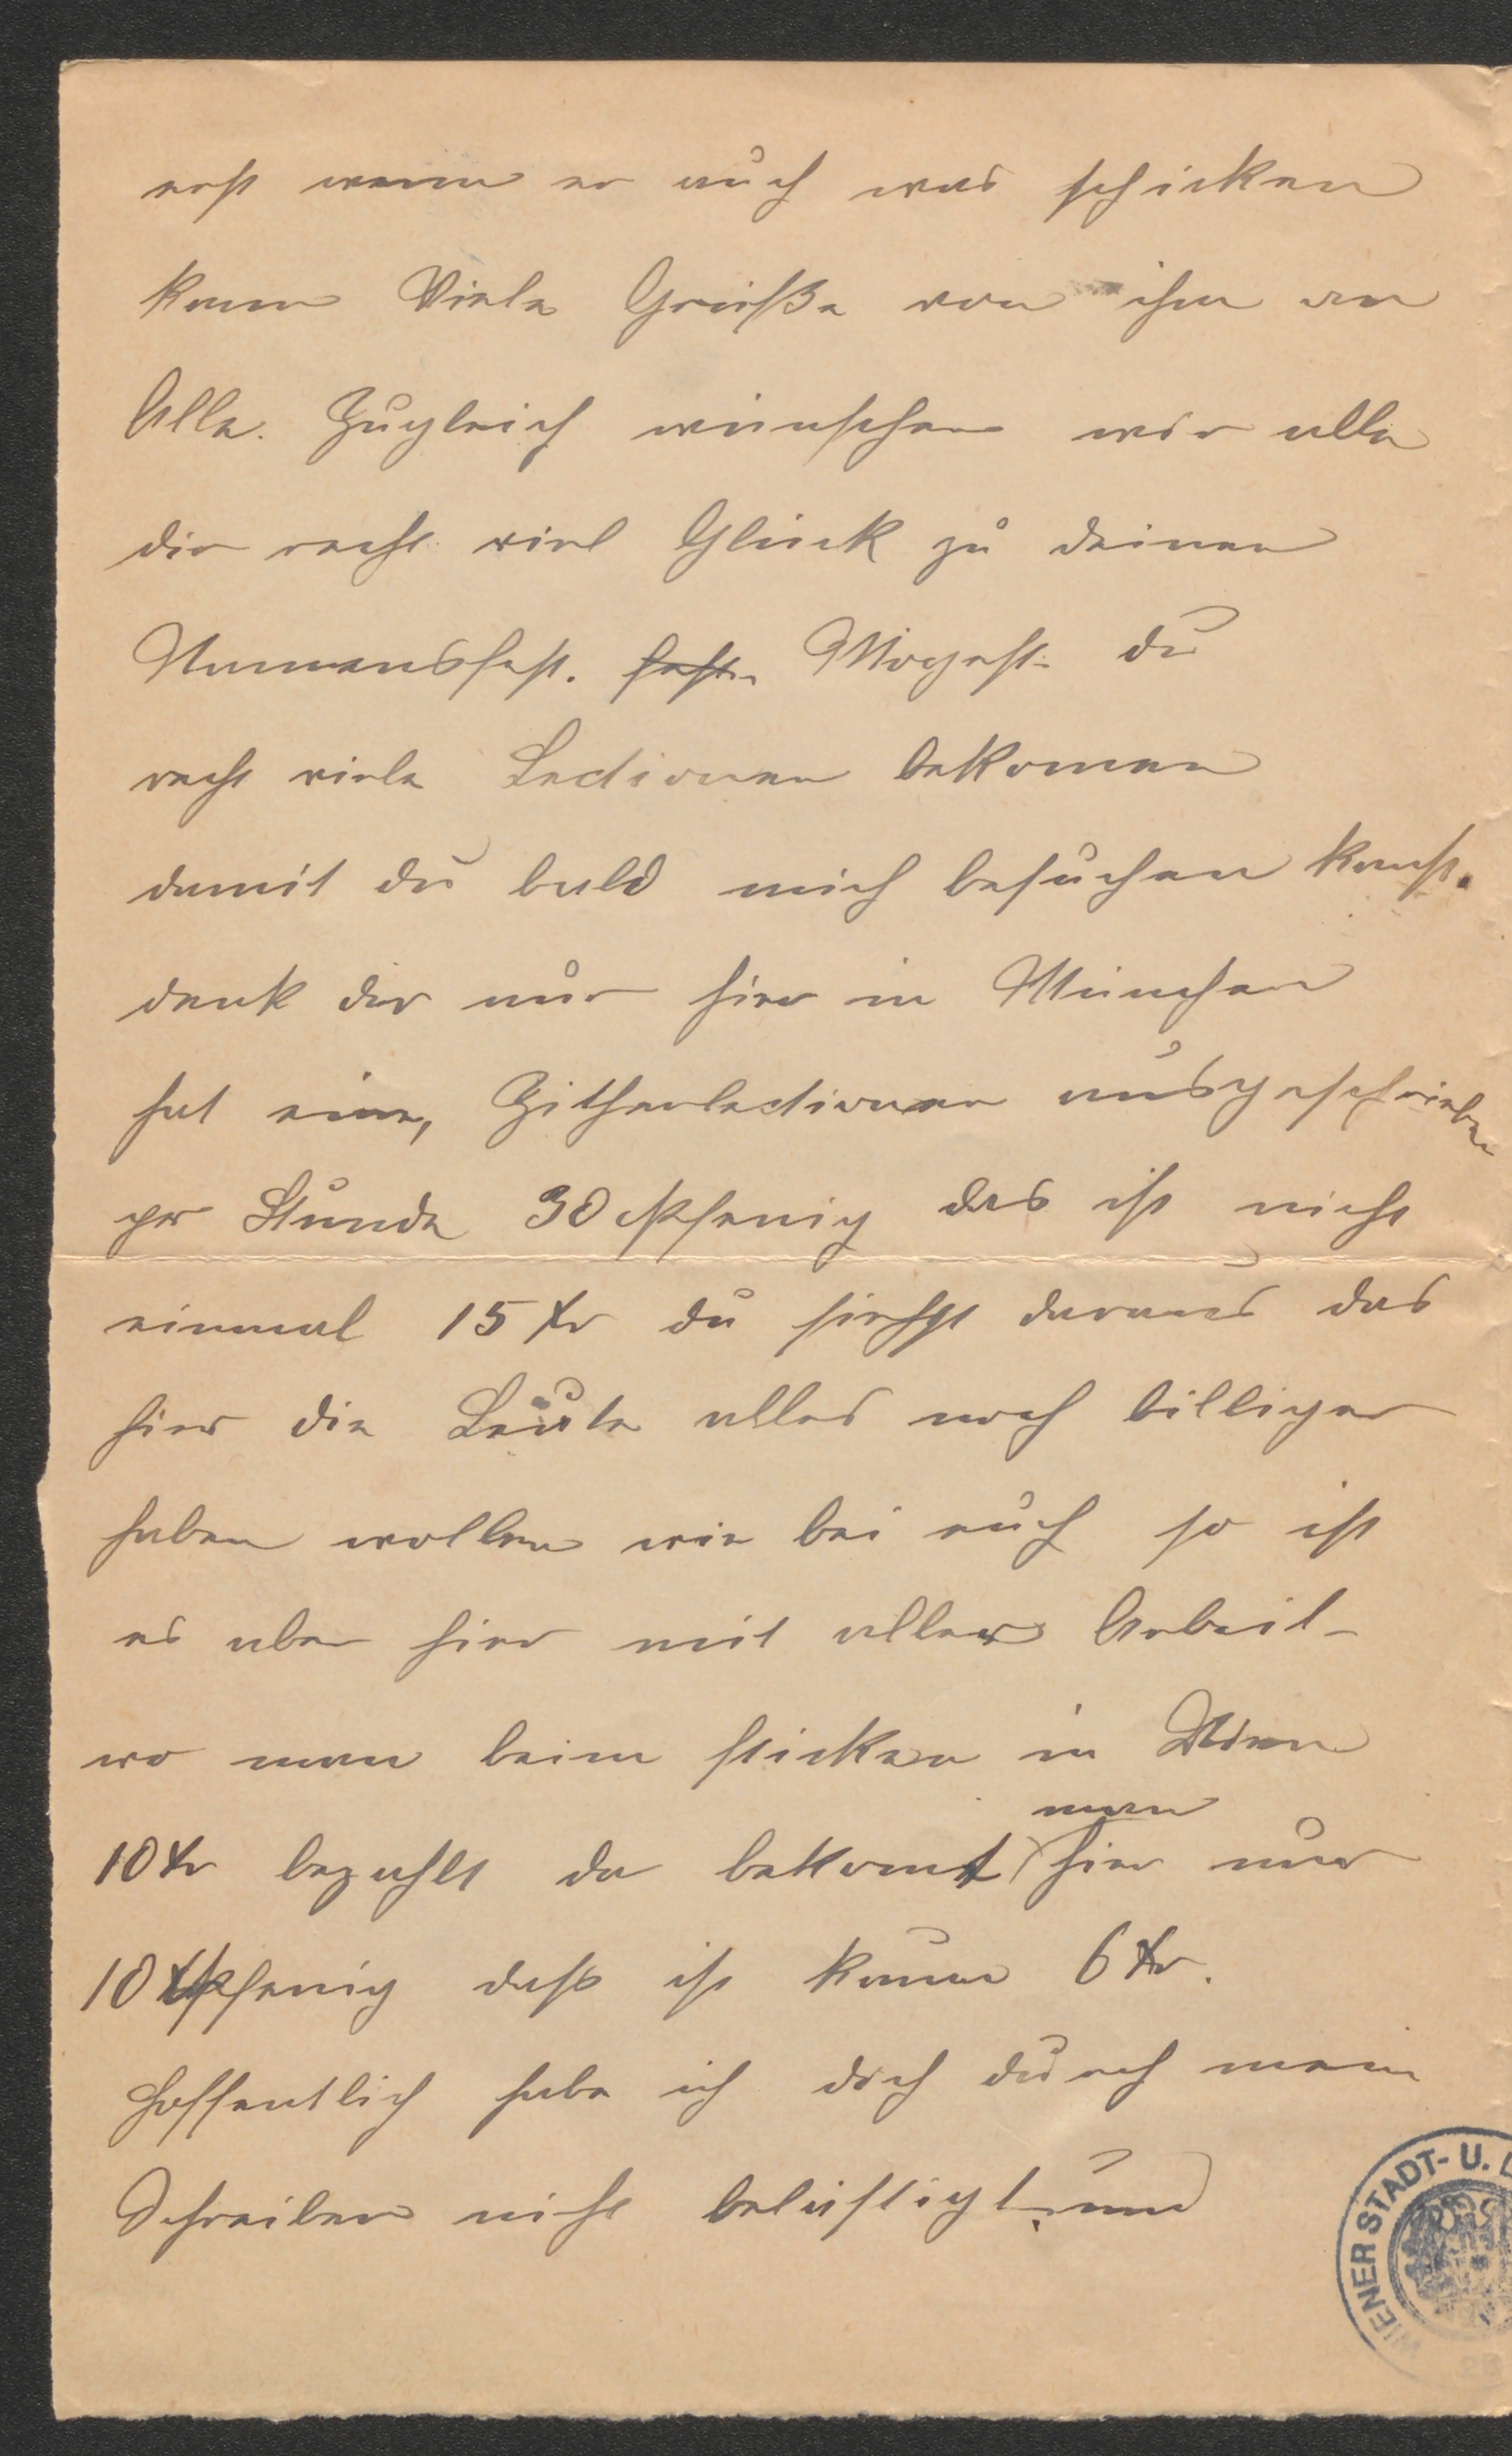 erst wenn er auch was schicken
kann Viele Grüße von ihm an
Alle. Zugleich wünschen wir alle
dir recht viel Glück zu deinen
Namensfest. fest. Mögest du
recht viele Lectionen bekomen
damit du bald mich besuchen kanst.
denk dir nur hier in München
hat eine, Zitherlectionen ausgeschrieben
per Stunde 30 Pfenig das ist nicht
einmal 15 kr du siehst daraus das
hier die Leute alles noch billiger
haben wollen wie bei euch so ist
es aber hier mit aller Arbeit
wo man beim sticken in Wien
man
10 kr bezahlt da bekomt hier nur
10 Pfenig daß ist kaum 6 kr.
Hoffentlich habe ich dich durch mein
Schreiben nicht belästigt und
WIENER STADT- U. L